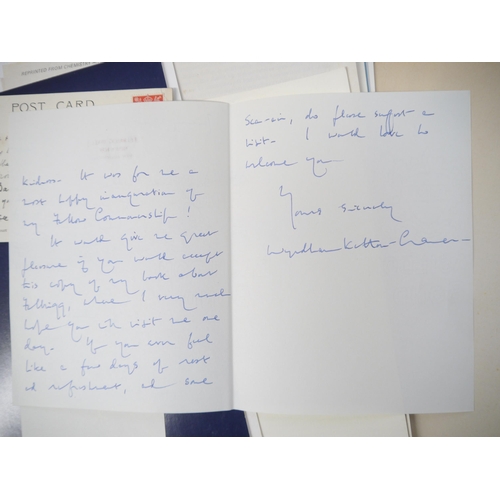 REPRINTED FROM CHEMISTRY
POST CARD
kindness. It was for me a
most happy inauguration of
my Fellow Commonership!
It would give me great
pleasure if you would accept
this copy of my book about
Felbrigg, where I very much
hope you will visit me one
day. If you ever feel
like a few days of rest
and refreshment, and some
sea-air, do please suggest a
visit. I would love to
welcome you.
Yours sincerely
Wyndham Ketton-Cremer